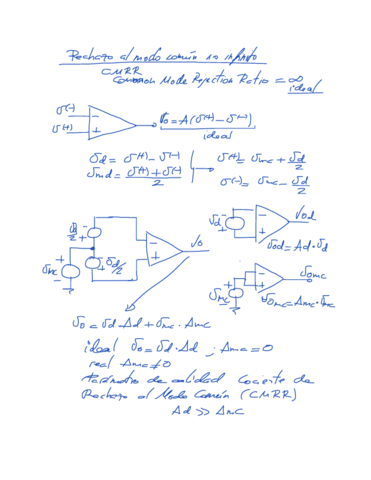 Rechazo al modo común no infinito
CMRR
Common Mode Rejection Ratio = ∞
ideal
v(-)
v(+)
vo = A(v(+) - v(-))
ideal
vd = v(+) - v(-)
v(+) = vmc + vd/2
vmd = (v(+) + v(-))/2
v(-) = vmc - vd/2
vd/2
vmc
vd/2
vo
vd
vod
vod = Ad·vd
vmc
vomc
vomc = Amc·vmc
vo = vd·Ad + vmc·Amc
ideal vo = vd·Ad ; Amc = 0
real Amc ≠ 0
Parámetro de calidad Cociente de
Rechazo al Modo Común (CMRR)
Ad >> Amc